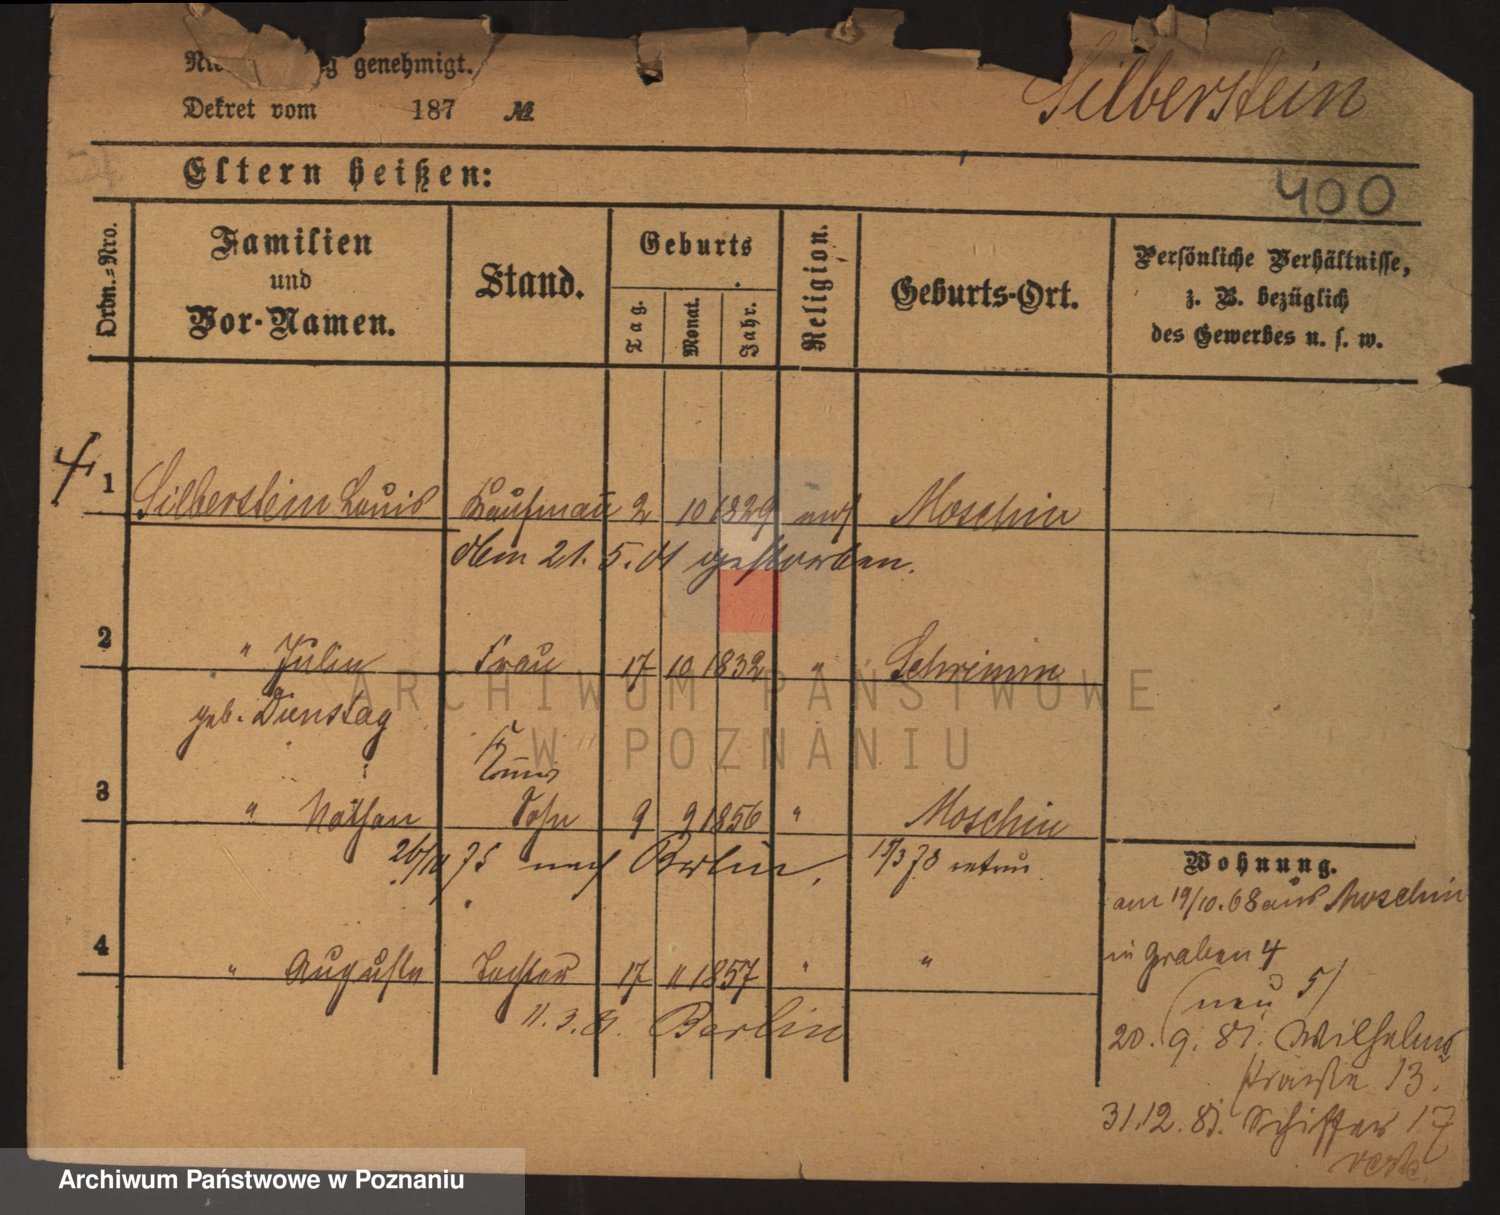 genehmigt.
Silberstein
Dekret vom 187 №
Eltern heißen:
400
Ordn.-Nro.
Familien und Vor-Namen.
Stand.
Geburts
Tag. Monat. Jahr.
Religion.
Geburts-Ort.
Persönliche Verhältnisse,
z. B. bezüglich
des Gewerbes u. s. w.
1 Silberstein Louis Kaufmann 2 10 1829 mos Moschin
den 21.5.01 gestorben.
2 " Julie Frau 17 10 1832 " Schrimm
geb. Dienstag
3 " Nathan Sohn 9 2 1856 " Moschin
75 nach Berlin, 15/3 78 retour
Wohnung.
am 19/10.68 aus Moschin
4 " Auguste Tochter 17 11 1857 " "
in Graben 4
(neu 5)
11.3.81. Berlin
20.9.81. Wilhelms
straße 13.
31.12.81. Schiffer 17
ARCHIWUM PAŃSTWOWE
W POZNANIU
Archiwum Państwowe w Poznaniu